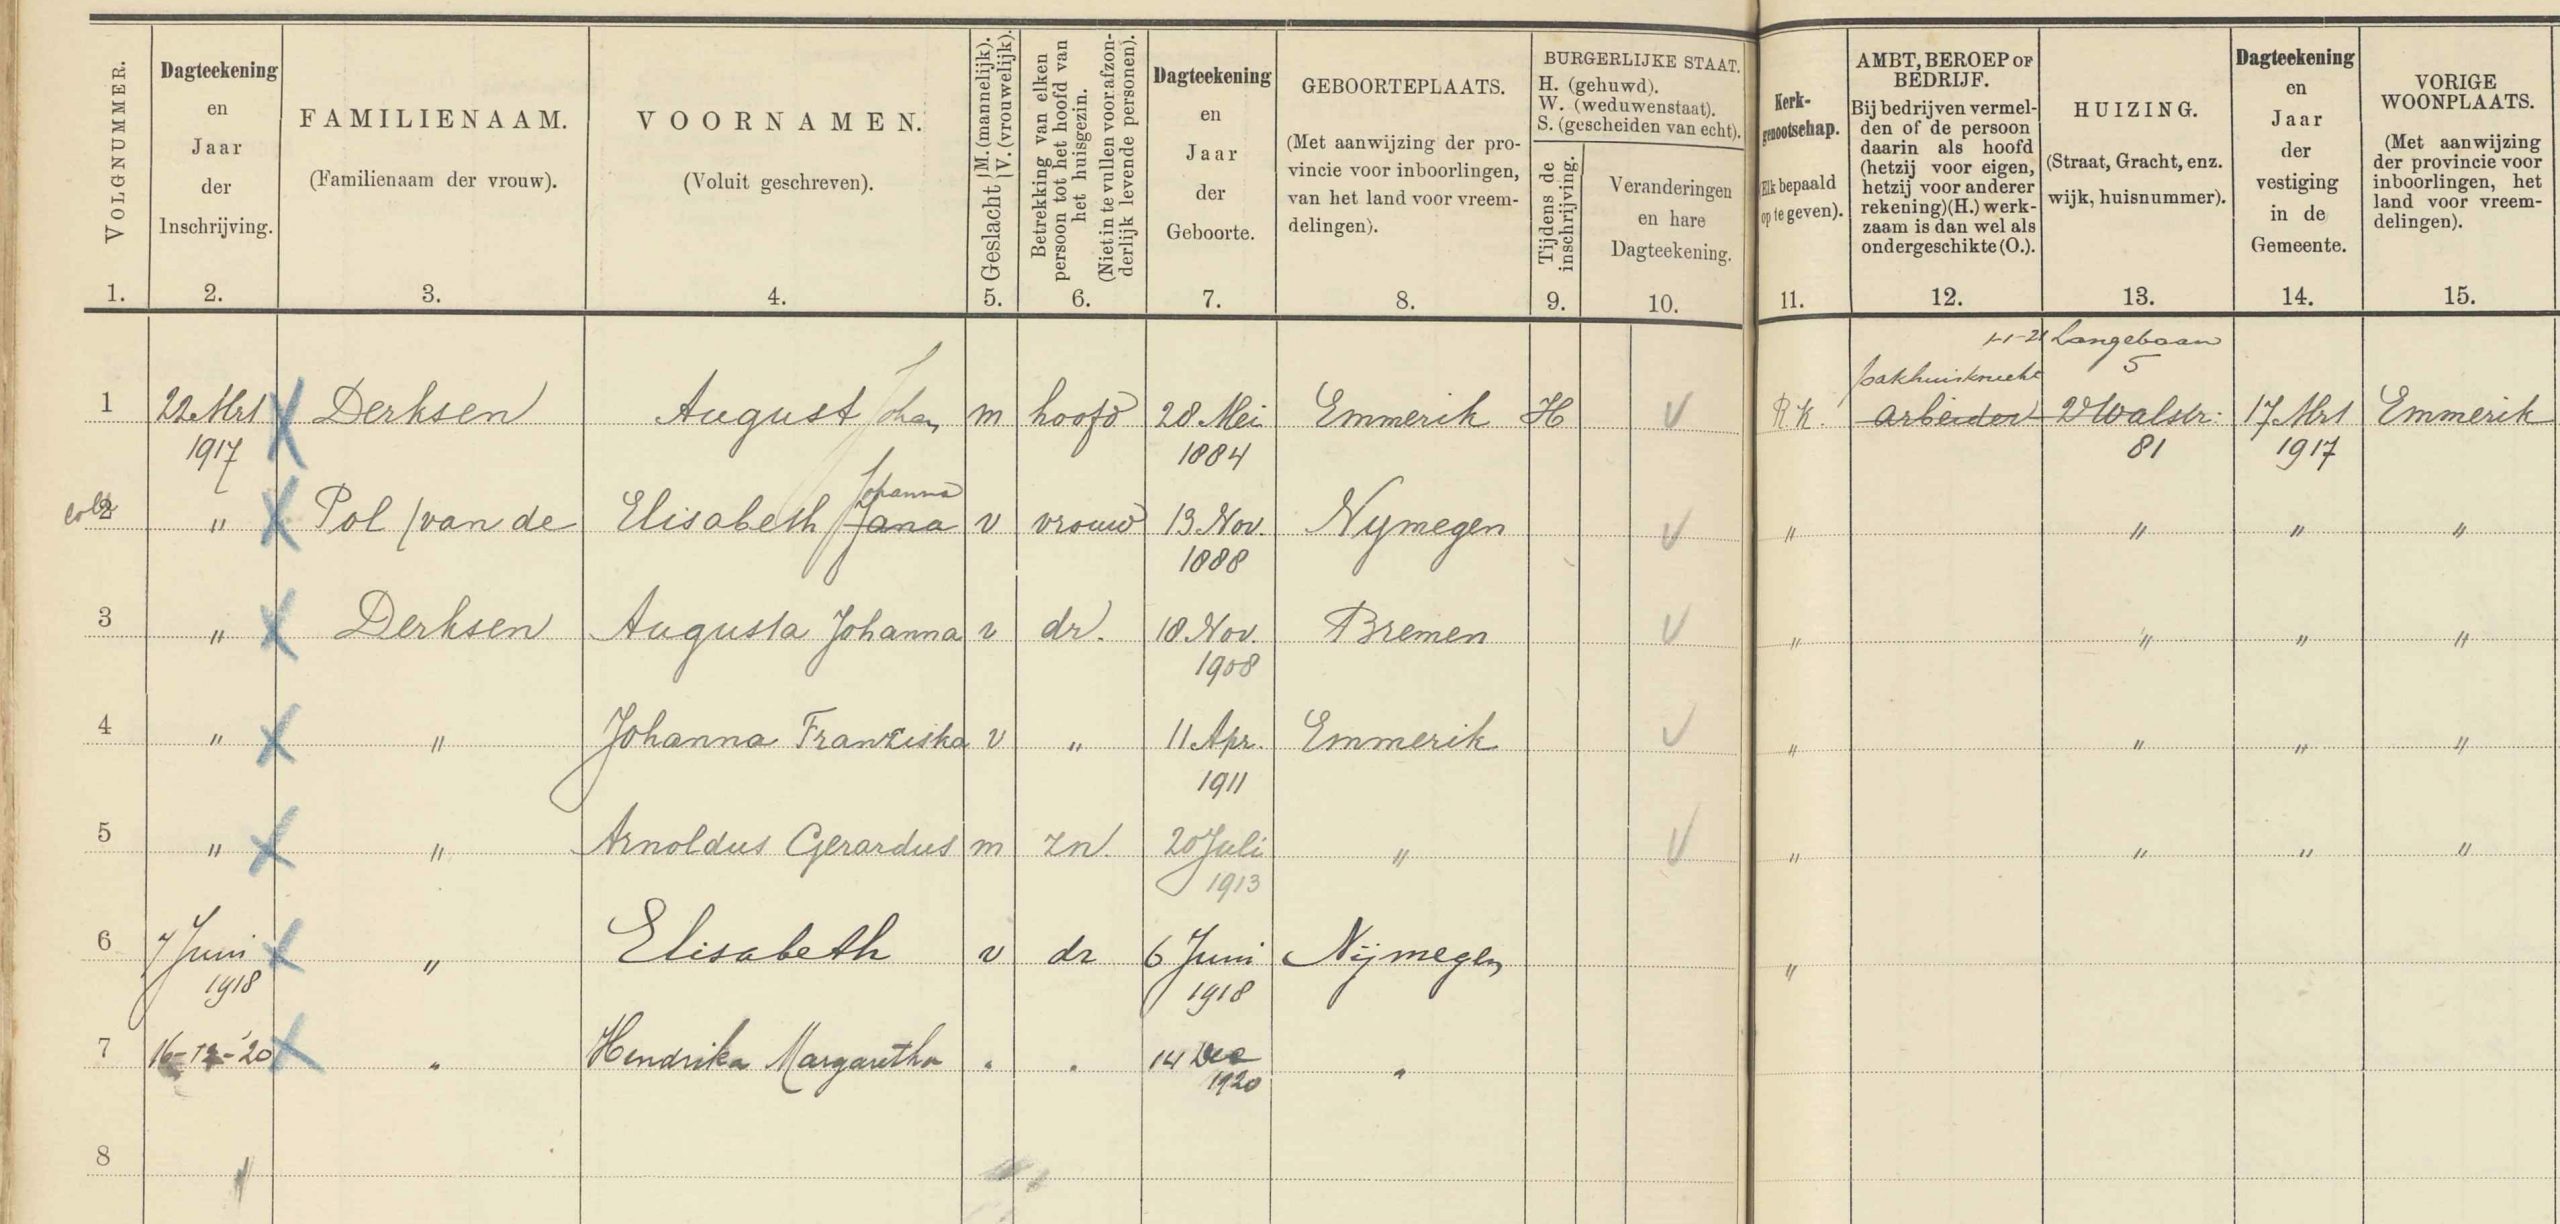 VOLGNUMMER.
1.
Dagteekening
en
Jaar
der
Inschrijving.
2.
FAMILIENAAM.
(Familienaam der vrouw).
3.
VOORNAMEN.
(Voluit geschreven).
4.
Geslacht {M. (mannelijk). V. (vrouwelijk).
5.
Betrekking van elken
persoon tot het hoofd van
het huisgezin.
(Niet in te vullen voor afzon-
derlijk levende personen).
6.
Dagteekening
en
Jaar
der
Geboorte.
7.
GEBOORTEPLAATS.
(Met aanwijzing der pro-
vincie voor inboorlingen,
van het land voor vreem-
delingen).
8.
BURGERLIJKE STAAT.
H. (gehuwd).
W. (weduwenstaat).
S. (gescheiden van echt).
Tijdens de
inschrijving.
9.
Veranderingen
en hare
Dagteekening.
10.
Kerk-
genootschap.
(Elk bepaald
op te geven).
11.
AMBT, BEROEP OF
BEDRIJF.
Bij bedrijven vermel-
den of de persoon
daarin als hoofd
(hetzij voor eigen,
hetzij voor anderer
rekening) (H.) werk-
zaam is dan wel als
ondergeschikte (O.).
12.
HUIZING.
(Straat, Gracht, enz.
wijk, huisnummer).
13.
Dagteekening
en
Jaar
der
vestiging
in de
Gemeente.
14.
VORIGE
WOONPLAATS.
(Met aanwijzing
der provincie voor
inboorlingen, het
land voor vreem-
delingen).
15.
1-1-21 Langebaan
pakhuisknecht 5
1 22 Mrt Derksen August Johan m hoofd 28 Mei Emmerik H R.K. arbeider 2e Walstr. 17 Mrt Emmerik
1917 1884 81 1917
Johanna
2 " Pol (van de Elisabeth Jana v vrouw 13 Nov. Nymegen " " " "
1888
3 " Derksen Augusta Johanna v dr. 18 Nov. Bremen " " " "
1908
4 " " Johanna Franziska v " 11 Apr. Emmerik " " " "
1911
5 " " Arnoldus Gerardus m zn. 20 Juli " " " " "
1913
6 7 Juni " Elisabeth v dr 6 Juni Nijmegen "
1918 1918
7 16-12-'20 " Hendrika Margaretha " " 14 Dec "
1920
8